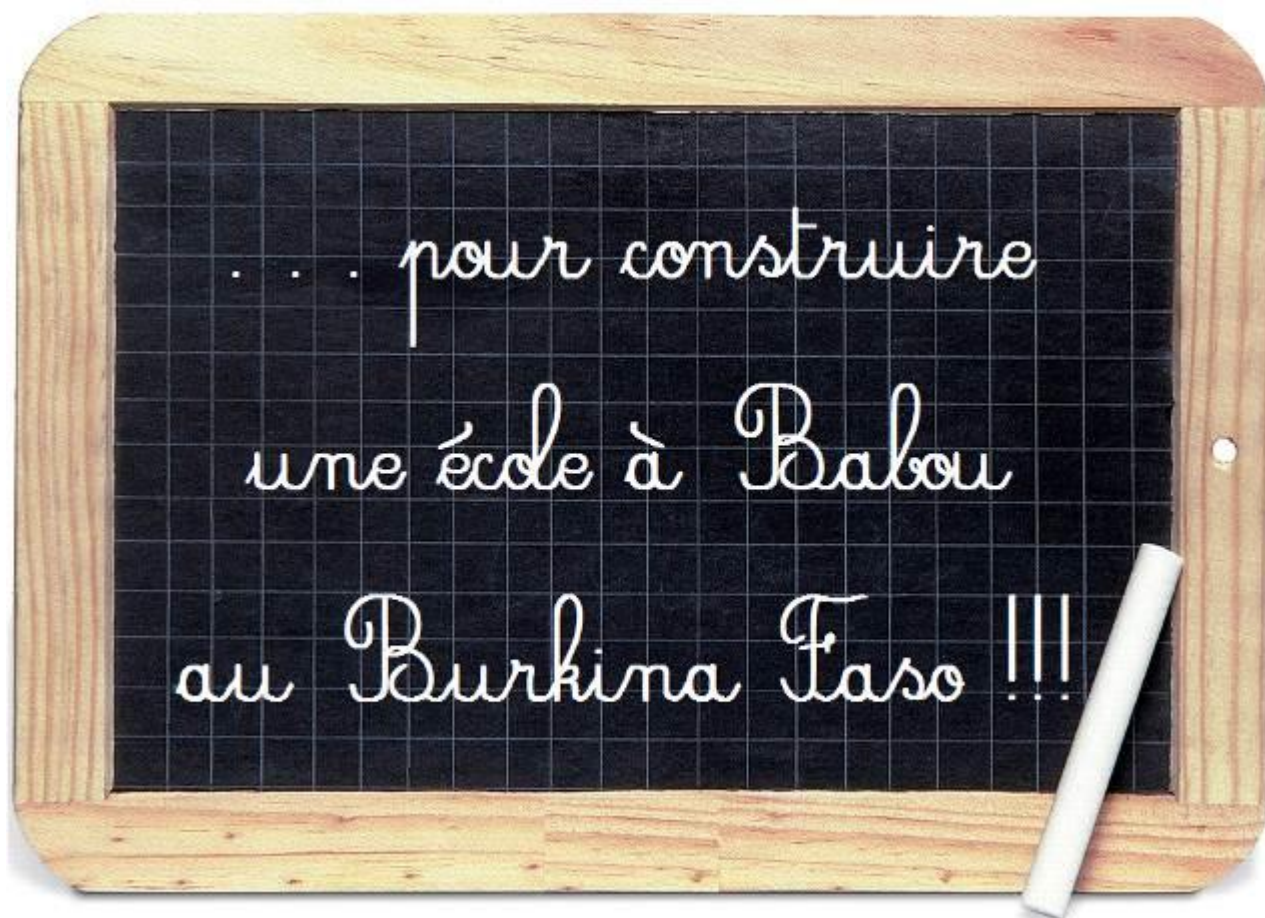 . . . pour construire
une école à Babou
au Burkina Faso !!!